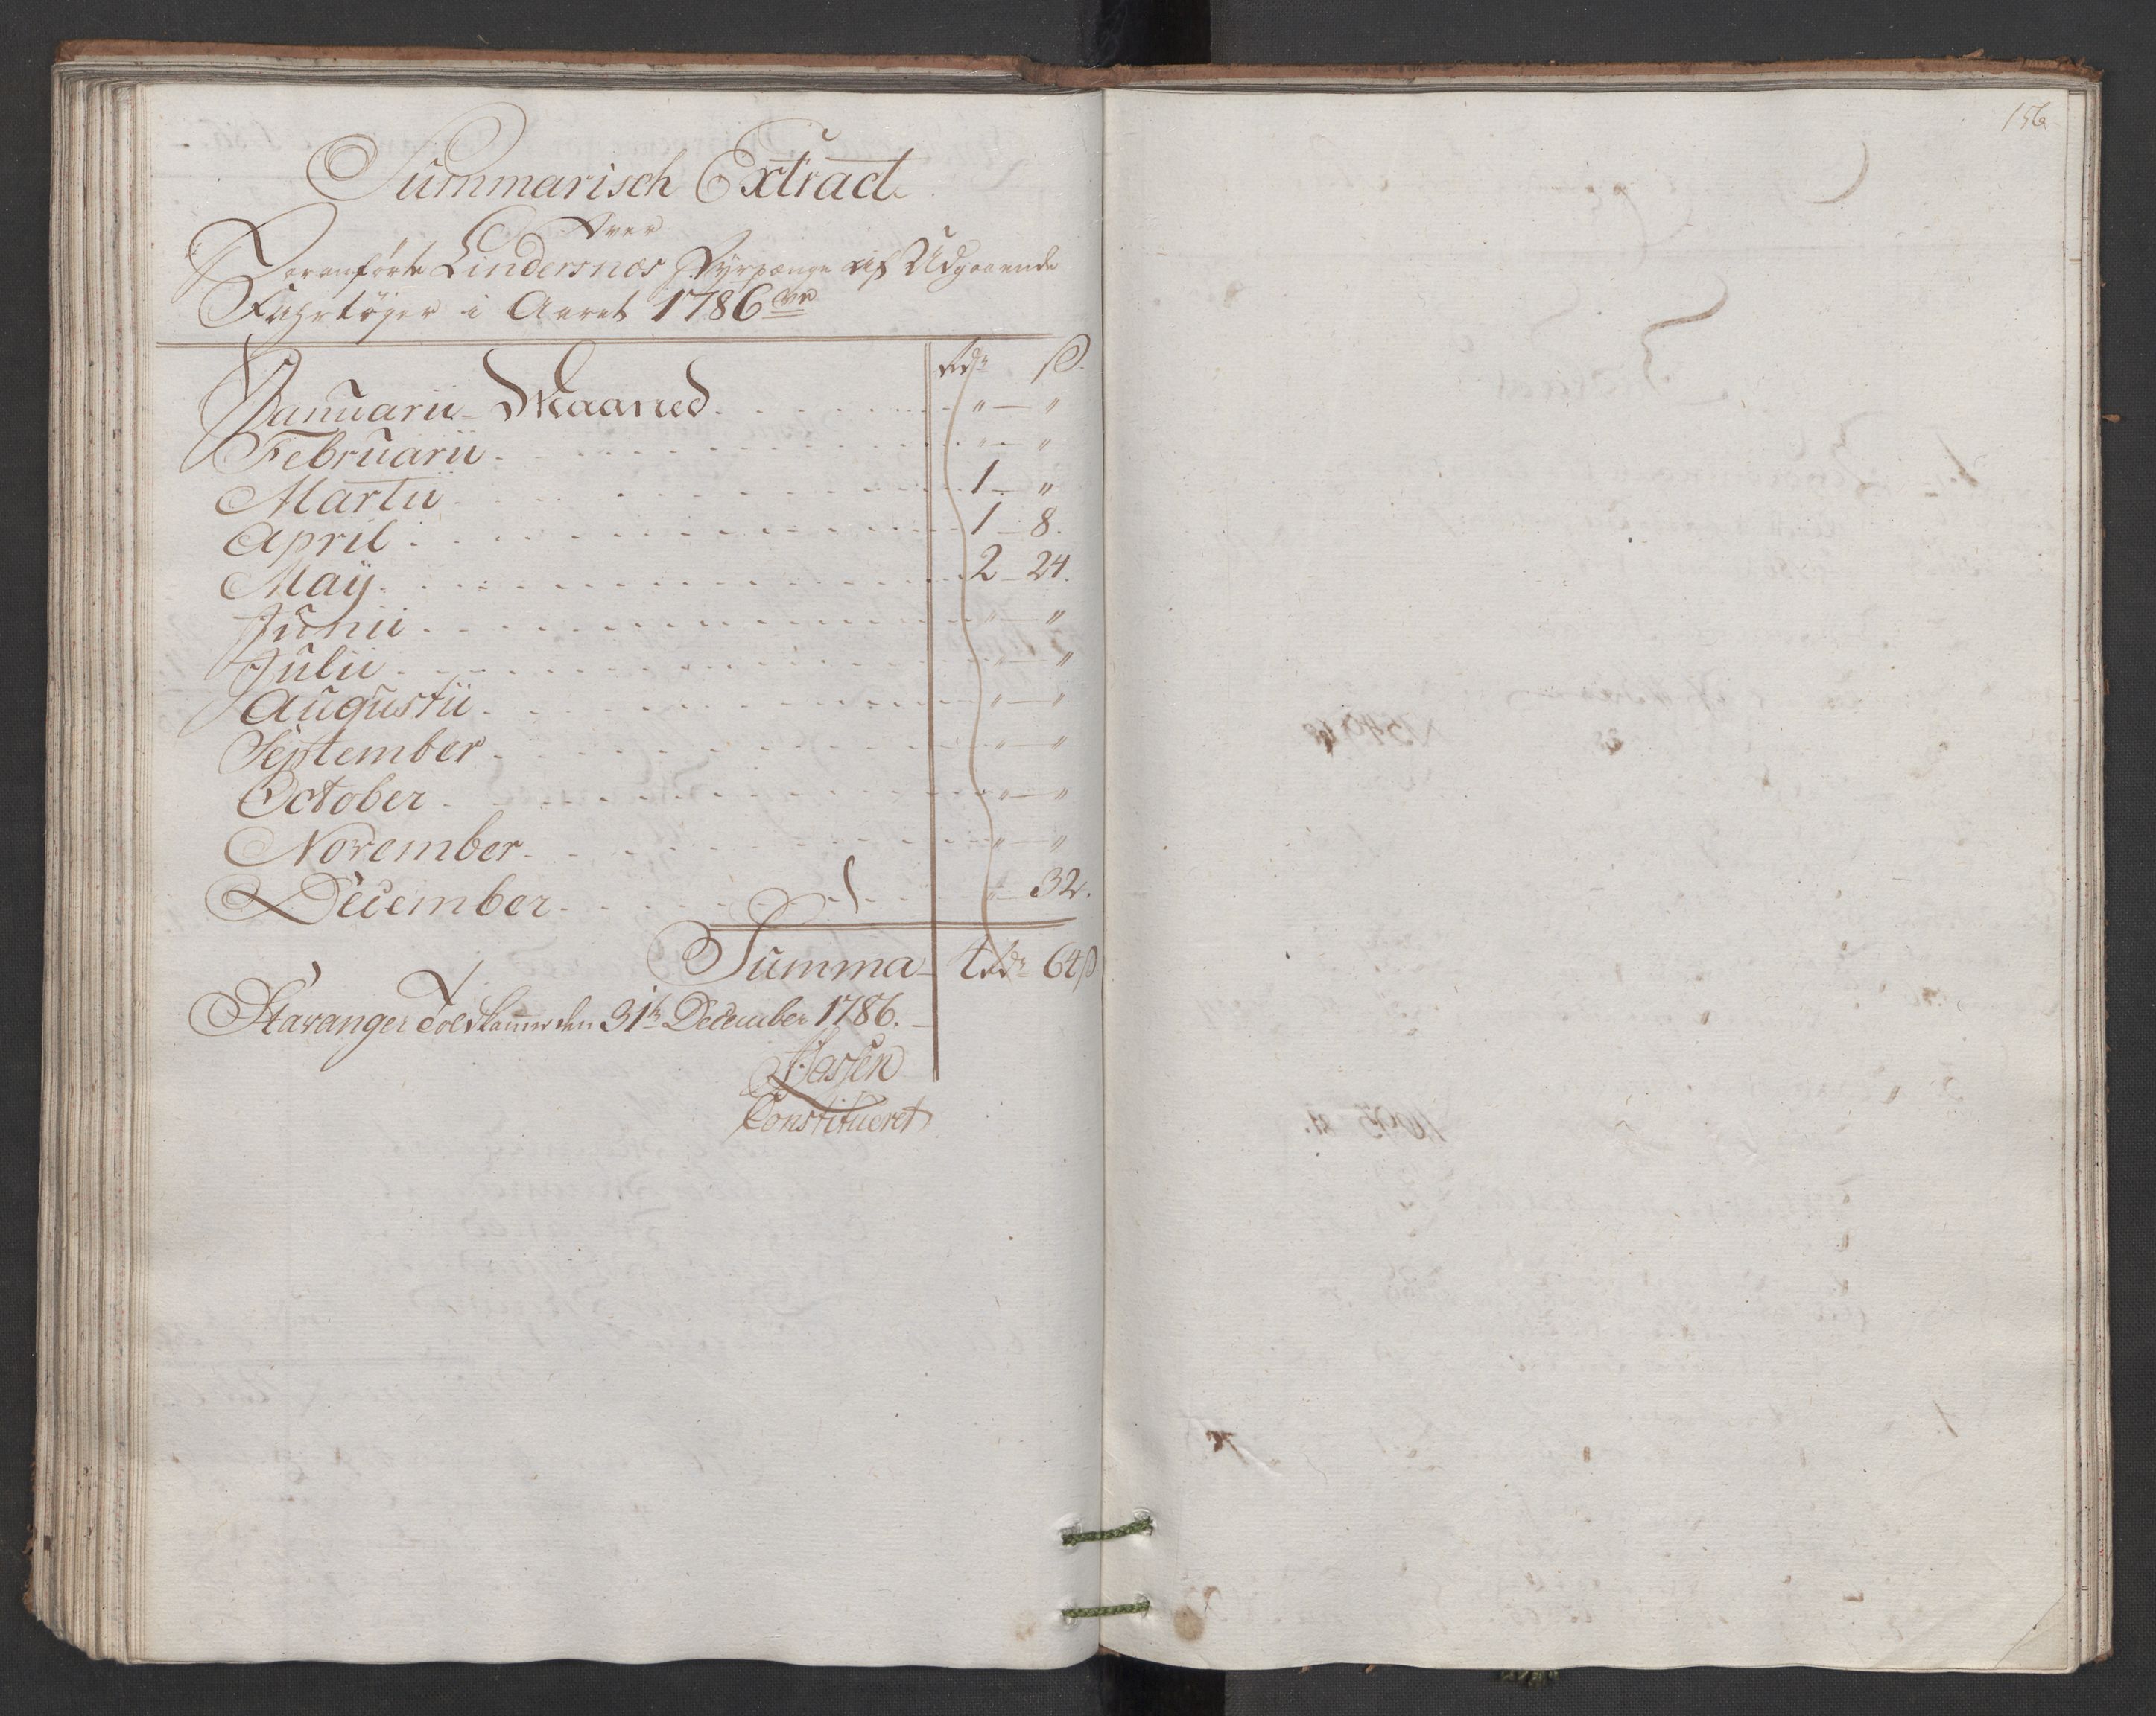 156
Summarisch Extract
Over
Foranførte Lindersnæs Fyrpænge af Udgaaende
Fahrtøyer i Aaret 1786
Rdr ß.
Januarii Maaned. „ — „
Februarii „ — „
Martii 1 — „
April 1 — 8.
Maij 2 — 24.
Junii „ — „
Julii „ — „
Augustii „ — „
September „ — „
October „ — „
November „ — „
December „ — 32.
Summa 4 Rdr 64 ß
Stavanger Toldkammer den 31te December 1786.
Constitueret